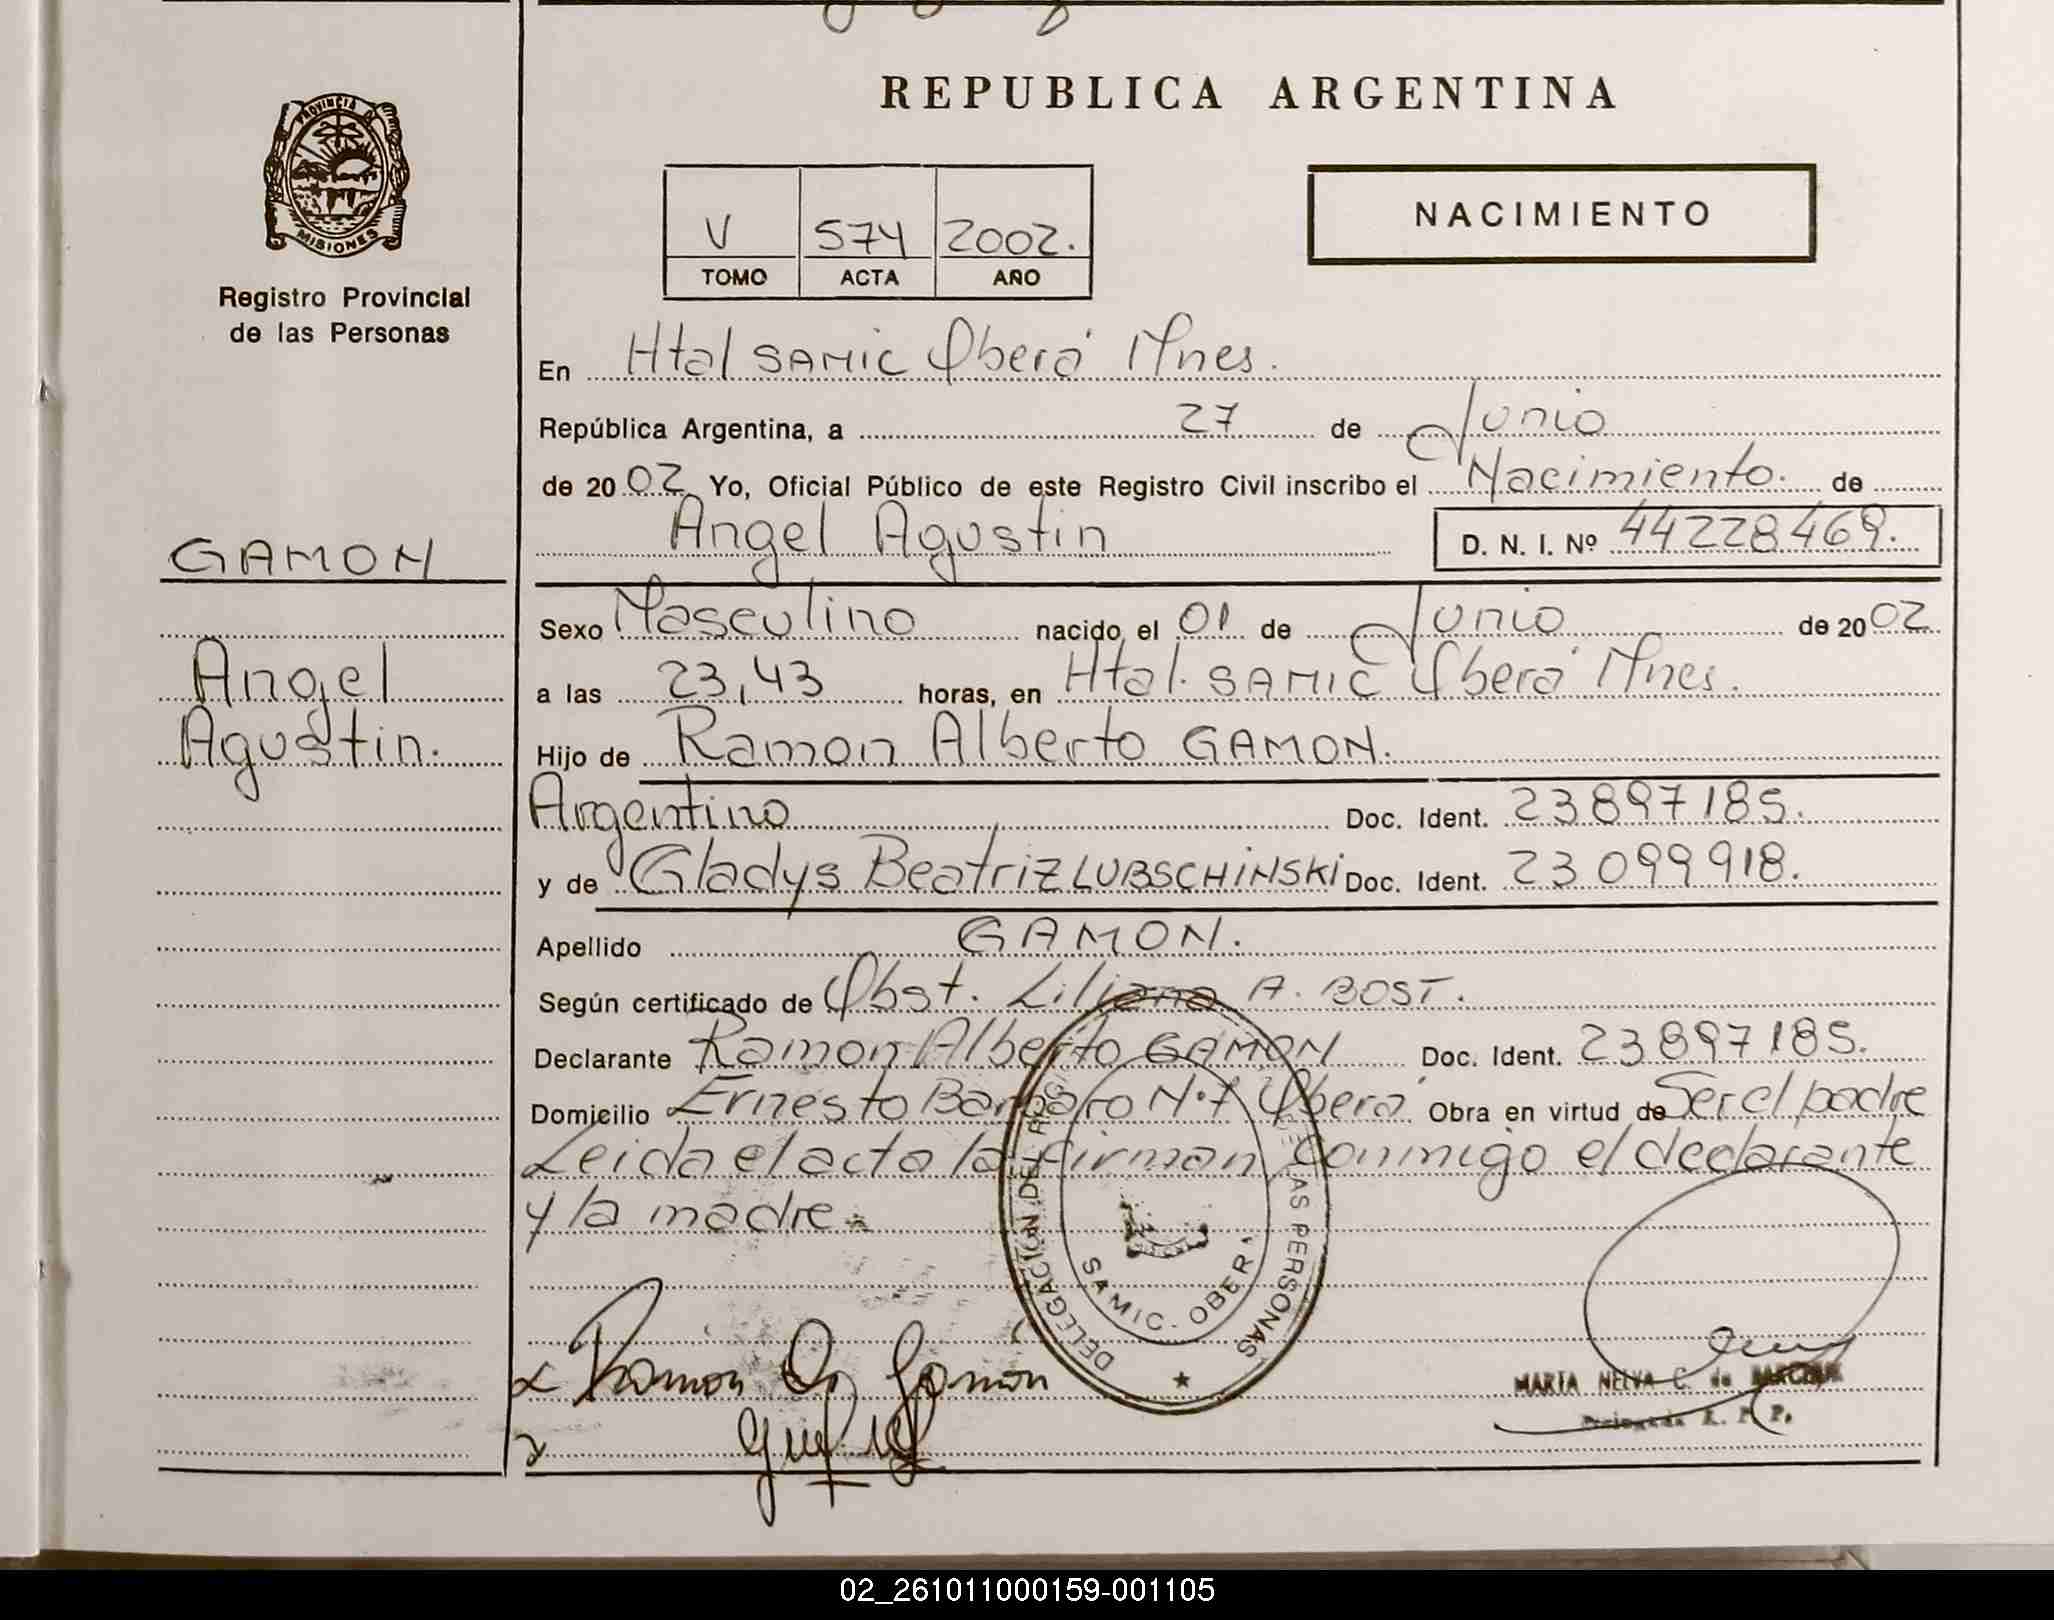 REPUBLICA ARGENTINA
PROVINCIA DE MISIONES
Registro Provincial
de las Personas
V 574 2002.
TOMO ACTA AÑO
NACIMIENTO
En Htal SAMIC Oberá Mnes.
República Argentina, a 27 de Junio
de 2002 Yo, Oficial Público de este Registro Civil inscribo el Nacimiento. de
Angel Agustin D. N. I. Nº 44228469.
GAMON
Angel
Agustin.
Sexo Masculino nacido el 01 de Junio de 2002
a las 23,43 horas, en Htal. SAMIC Oberá Mnes.
Hijo de Ramon Alberto GAMON.
Argentino Doc. Ident. 23897185.
y de Gladys Beatriz LUBSCHINSKI Doc. Ident. 23099918.
Apellido GAMON.
Según certificado de Obst. Liliana A. BOST.
Declarante Ramon Alberto GAMON Doc. Ident. 23897185.
Domicilio Ernesto Barbaro Nº1 Oberá Obra en virtud de Ser el padre
Leida el acta la firman conmigo el declarante
y la madre.
DELEGACION DEL REG. DE LAS PERSONAS
SAMIC - OBERA
Ramon Gamon
MARTA NELVA C. de
Delegada R. P. P.
02_261011000159-001105